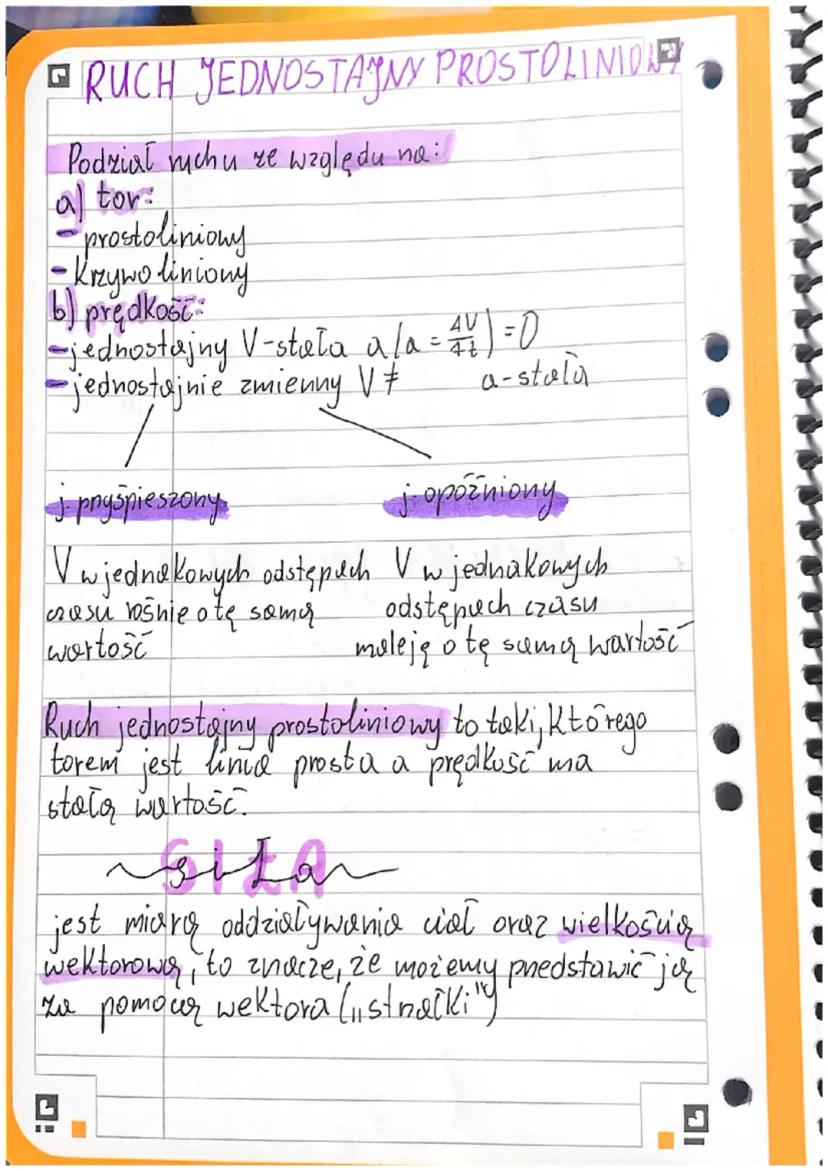 RUCH JEDNOSTAJNY PROSTOLINIOWY
Podział ruchu ze względu na:
a) tor:
- prostoliniowy
- krzywoliniowy
b) prędkość:
- jednostajny V-stała a(a = ΔV/Δt) = 0
- jednostajnie zmienny V ≠ a-stała
j. przyśpieszony
j. opóźniony
V w jednakowych odstępach
czasu rośnie o tę samą
wartość
V w jednakowych
odstępach czasu
maleję o tę samą wartość
Ruch jednostajny prostoliniowy to taki, którego
torem jest linia prosta a prędkość ma
stałą wartość.
SIŁA
siła
jest miarą oddziaływania ciał oraz wielkością
wektorową, to znacze, że możemy przedstawić ją
za pomocą wektora („strzałki")